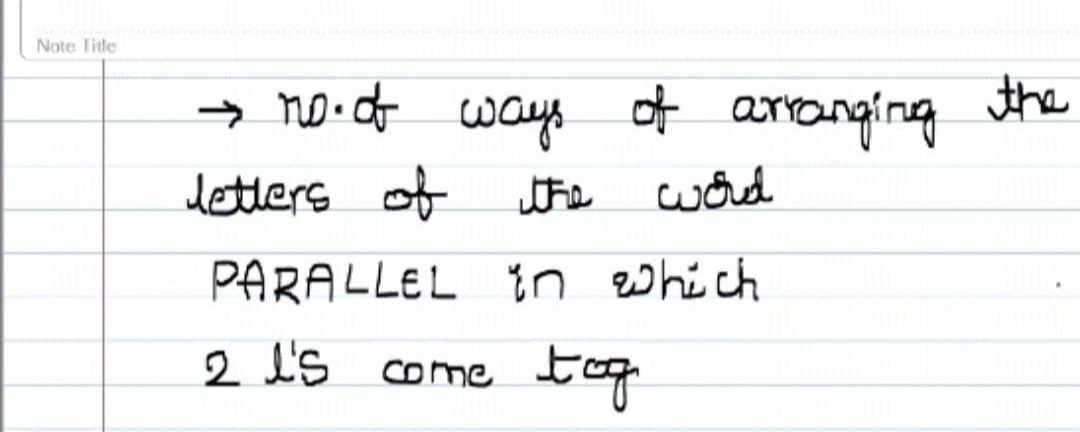 Note Title
→ no. of ways of arranging the
letters of the word
PARALLEL in which
2 L's come tog